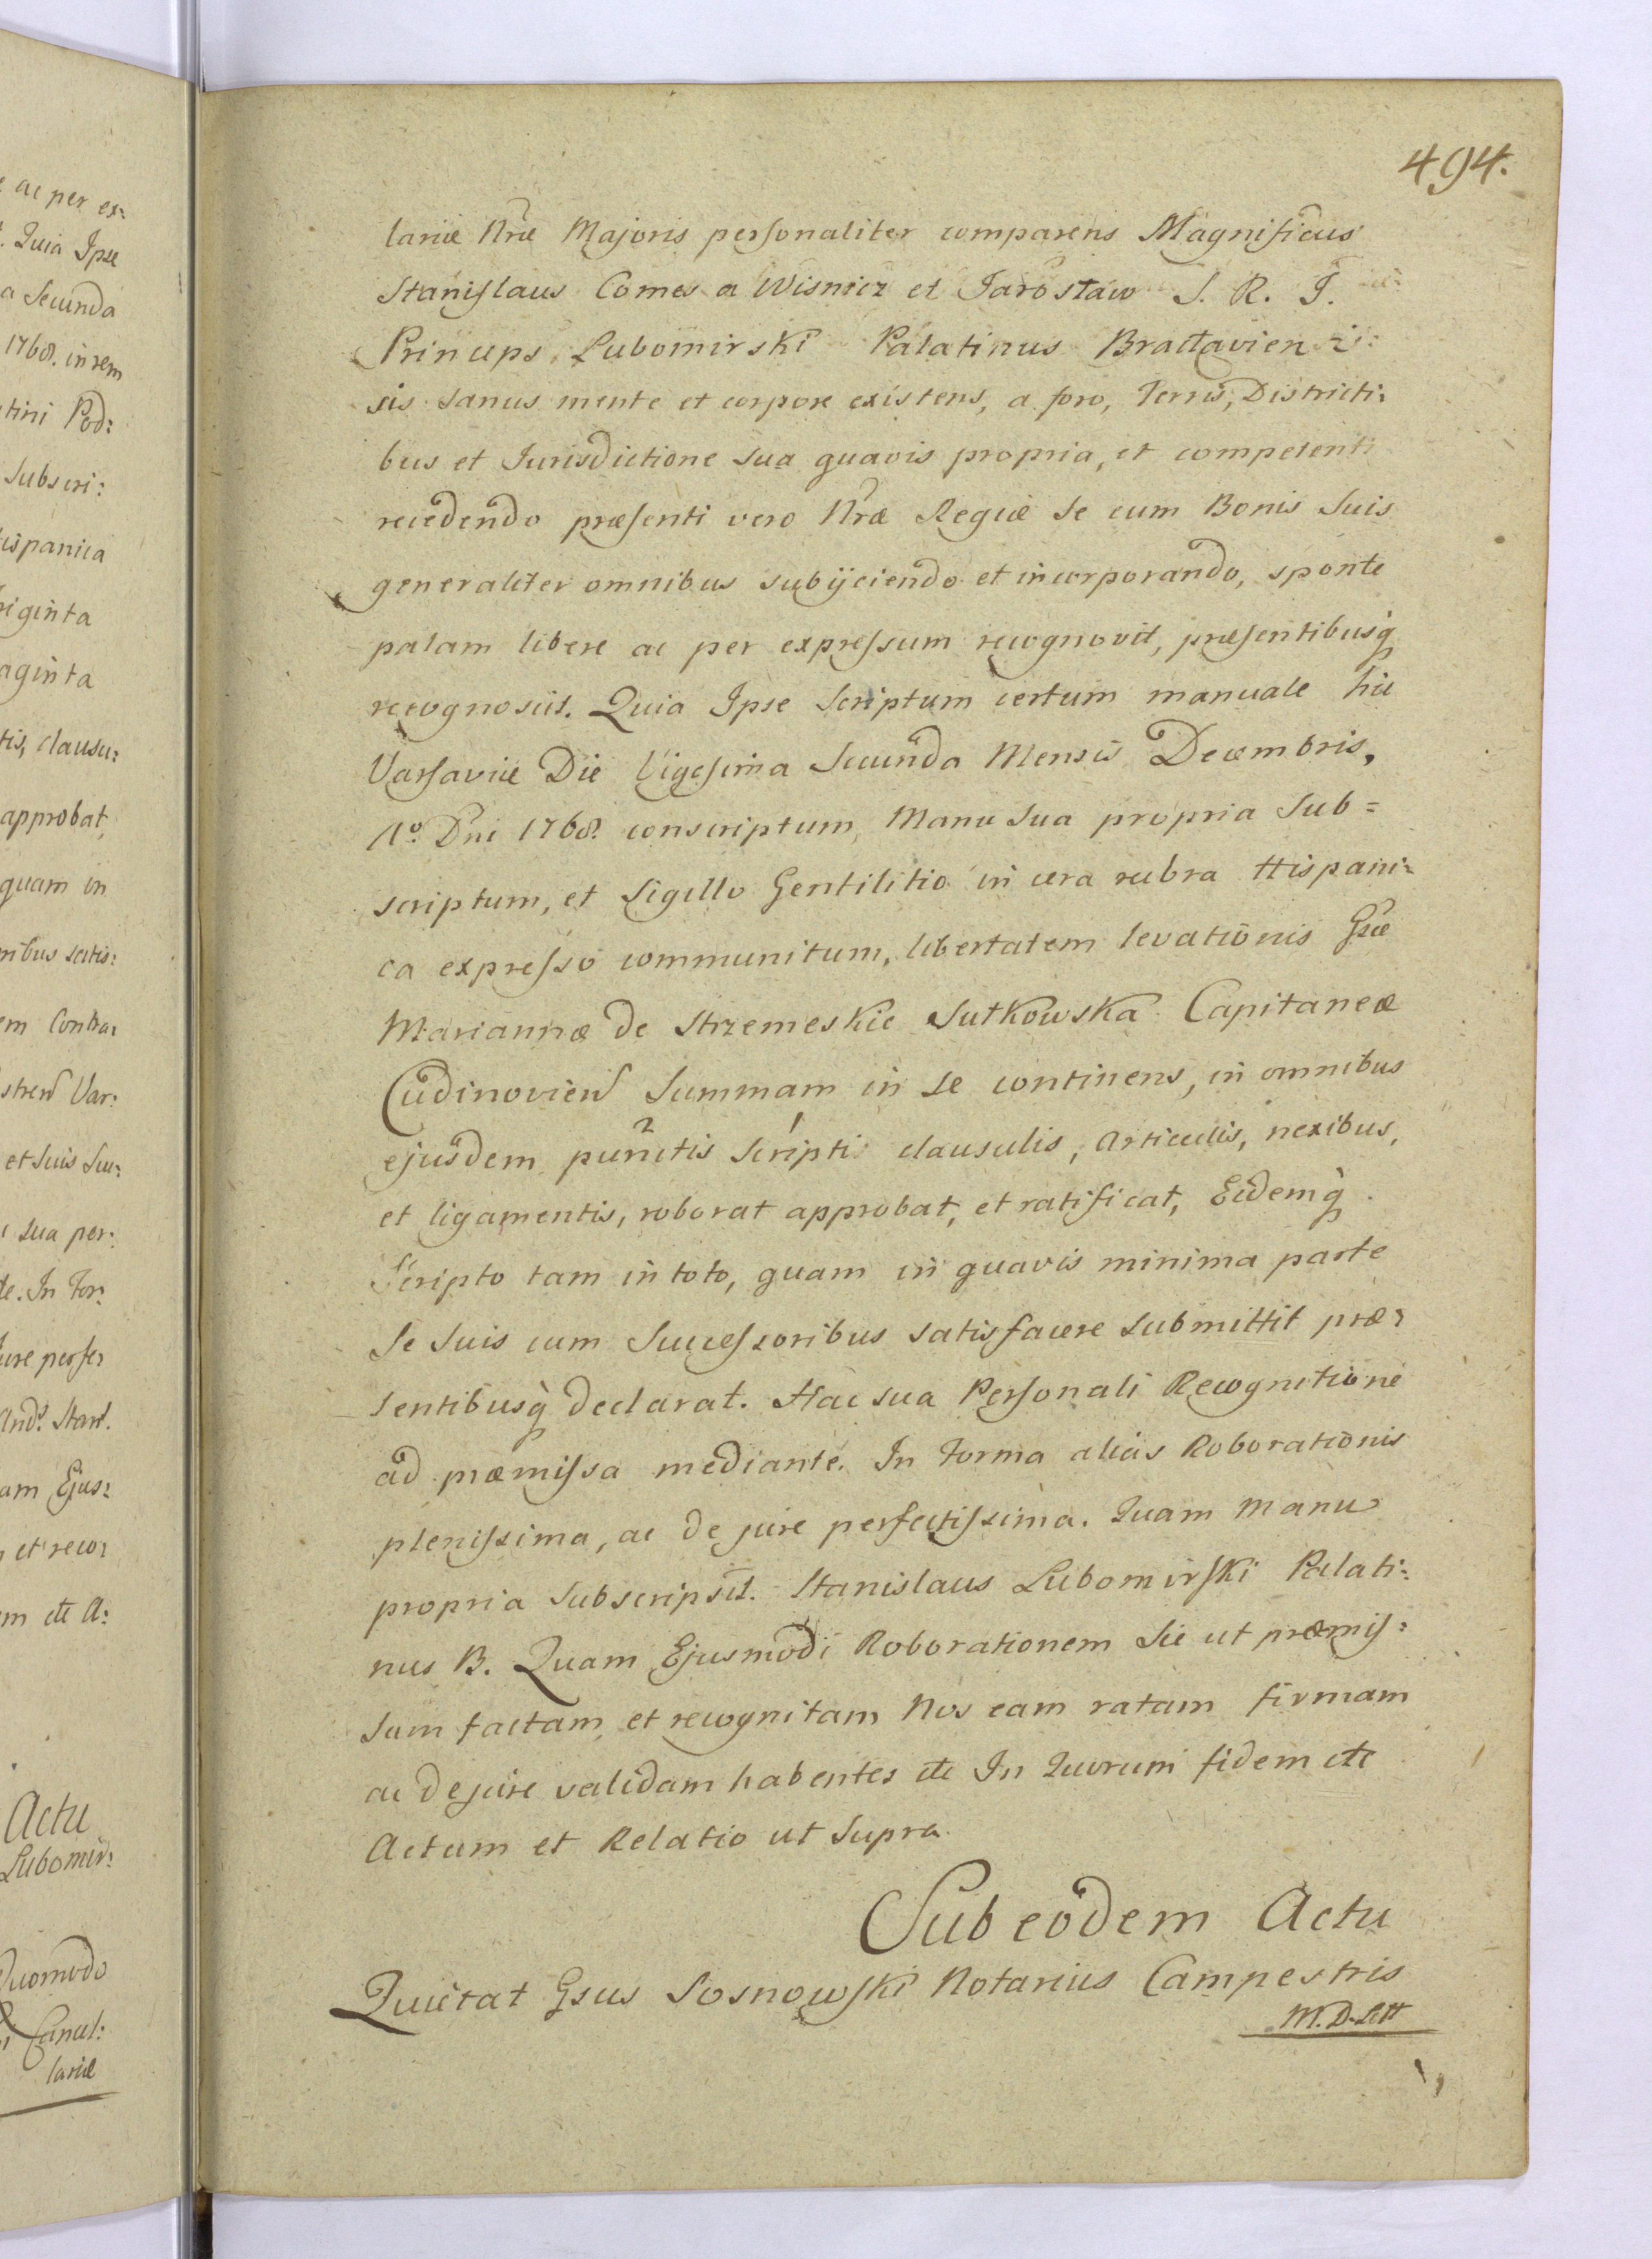 494.
lariæ Nræ Majoris personaliter comparens Magnificus
Stanislaus Comes a Wisnicz et Jarosław S. R. I.
Princeps Lubomirski Palatinus Braclavien
sis sanus mente et corpore existens, a foro, Terris, Districti:
bus et Jurisdictione sua quavis propria, et competenti
recedendo præsenti vero Nræ Regiæ se cum Bonis Suis
generaliter omnibus subijciendo et incorporando, sponte
palam libere ac per expressum recognovit, præsentibusq̀
recognoscit. Quia Ipse Scriptum certum manuale hic
Varsaviæ Die Vigesima Secunda Mensis Decembris,
Ao. Dni 1768. conscriptum, Manu Sua propria Sub=
scriptum, et Sigillo Gentilitio in cera rubra Hispani:
ca expresso communitum, libertatem levationis Gsæ
Mariannæ de Strzemeskie Sutkowska Capitaneæ
Cudinovien Summam in se continens, in omnibus
ejusdem 2 punctis 1 Scripti clausulis, Articulis, nexibus,
et ligamentis, roborat approbat, et ratificat, Eidemq̀
Scripto tam in toto, quam in quavis minima parte
Se Suis cum Successoribus satisfacere submittit præ:
sentibusq̀ declarat. Hac sua Personali Recognitione
ad præmissa mediante. In Forma alias Roborationis
plenissima, ac de jure perfectissima. Quam Manu
propria Subscripsit. Stanislaus Lubomirski Palati:
nus B. Quam Ejusmodi Roborationem Sic ut præmis:
sum factam, et recognitam Nos eam ratam firmam
ac de jure validam habentes etc In Quorum fidem etc
Actum et Relatio ut Supra.
Sub eodem Actu
Quietat Gsus Sosnowski Notarius Campestris
M. D. Litt
ac per ex:
Quia Ipse
a Secunda
1768. in rem
tini Pod:
Subscri:
ispanica
riginta
aginta
tis, clausu:
approbat,
quam in
nibus satis:
em Contra:
Var:
et Suis Suc:
sua per:
de. In For:
jure perfe:
am Ejus:
et reco:
m etc A:
Actu
Lubomir:
Quomodo
Cancel:
lariæ